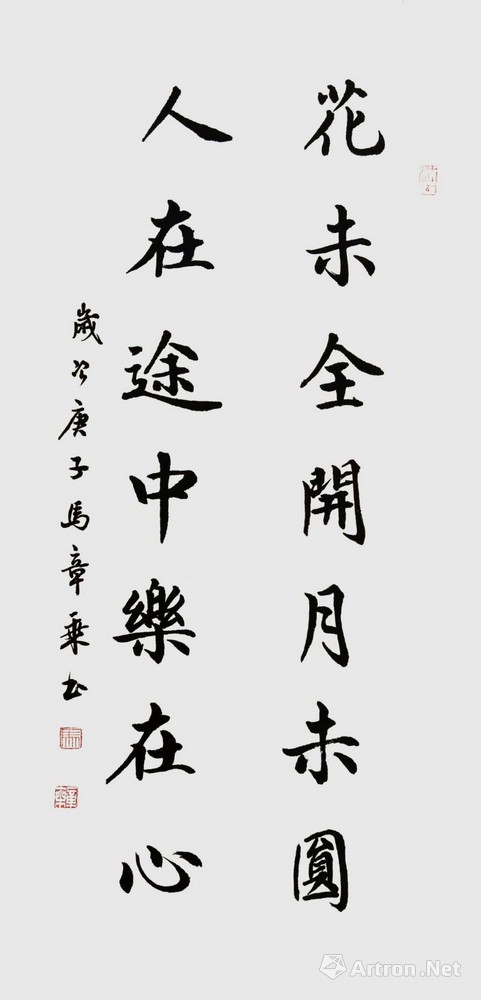 花未全開月未圓
人在途中樂在心
歲次庚子馬章乘書
雅昌艺术网
Artron.Net